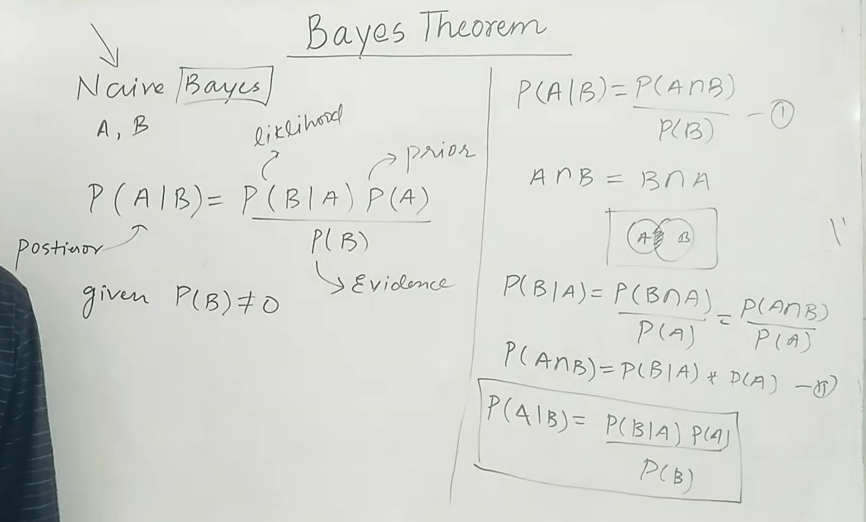 Bayes Theorem
Naive Bayes
A, B
liklihood
prior
P(A|B) = P(B|A) P(A)
P(B)
Postirior
Evidence
given P(B) ≠ 0
P(A|B) = P(A∩B)
P(B)
— ①
A∩B = B∩A
A B
P(B|A) = P(B∩A) = P(A∩B)
P(A) P(A)
P(A∩B) = P(B|A) * P(A) — ⑪
P(A|B) = P(B|A) P(A)
P(B)